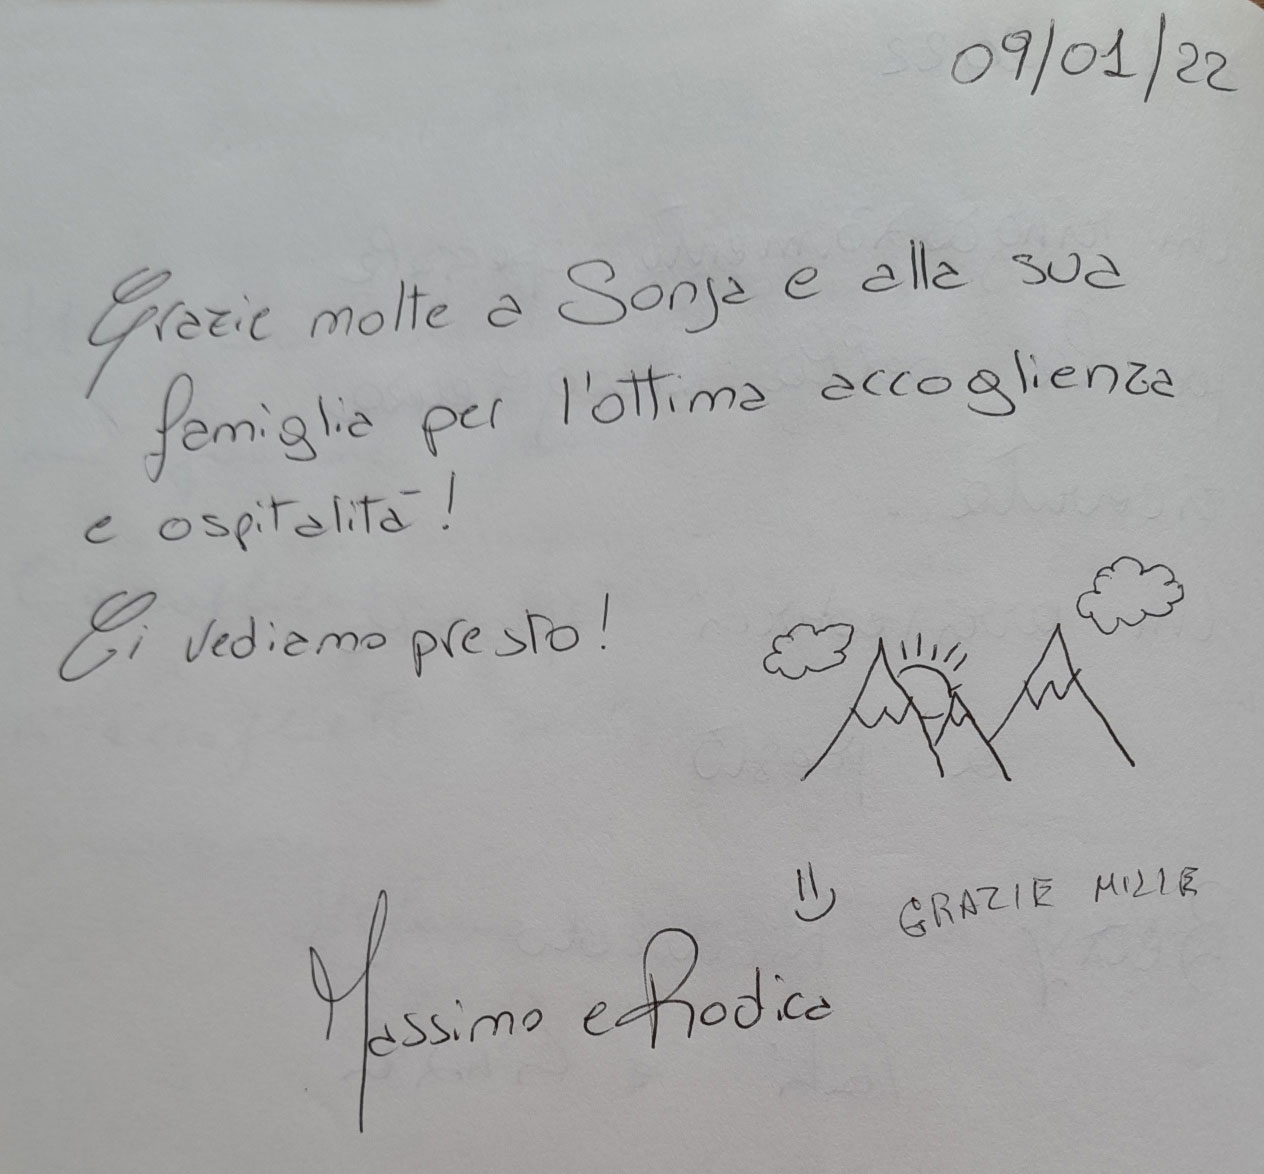 09/01/22
Grazie molte a Sonja e alla sua
famiglia per l'ottima accoglienza
e ospitalità!
Ci vediamo presto!
GRAZIE MILLE
Massimo e Rodica